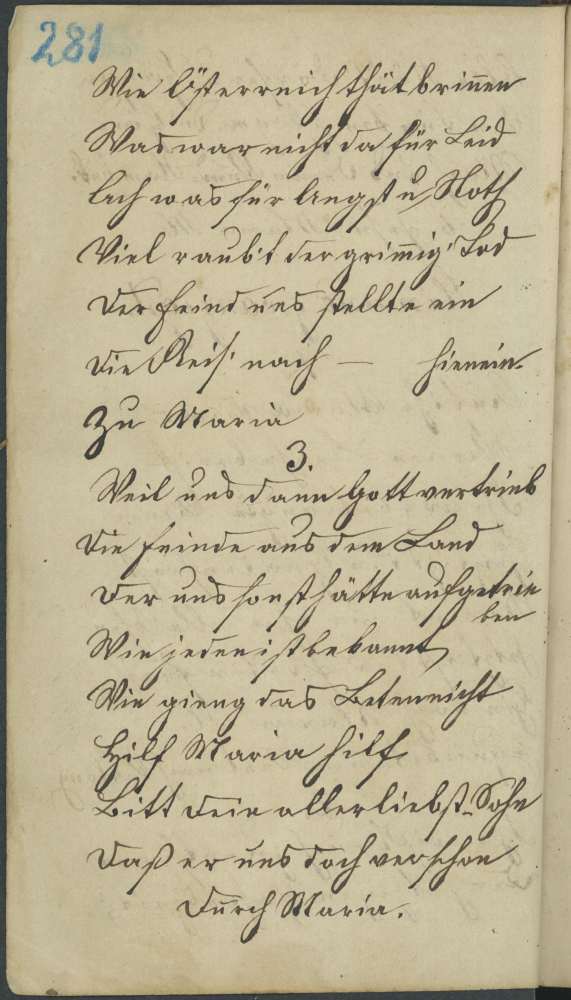 281
Wie Österreich thät brinnen
Was war nicht da für Leid
Ach was für Angst u. Noth
Viel raub't der grimig' Tod
Der Feind uns stellte ein
Die Reis' nach — hienein.
Zu Maria
3.
Weil uns dann Gott vertrieb
Die Feinde aus dem Land
Der uns sonst hätte aufgetrie
ben
Wie jeden ist bekannt
Wie gieng das Beten nicht
Hilf Maria hilf
Bitt dein allerliebst. Sohn
Daß er uns doch verschon
Durch Maria.